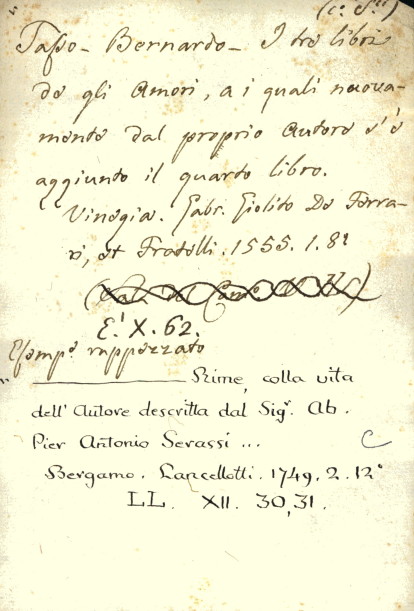 (c. S.ti)
Tasso - Bernardo - I tre libri
de gli Amori, a i quali nuova-
mente dal proprio Autore s'è
aggiunto il quarto libro.
Vinegia. Gabr. Giolito De Ferra-
ri, et Fratelli. 1555. 1. 8º
E.' X. 62.
Esemp.e rappezzato
" ——— Rime, colla vita
dell' Autore descritta dal Sig.r Ab.
Pier Antonio Serassi ... C
Bergamo. Lancellotti. 1749. 2. 12º
LL. XII. 30, 31.